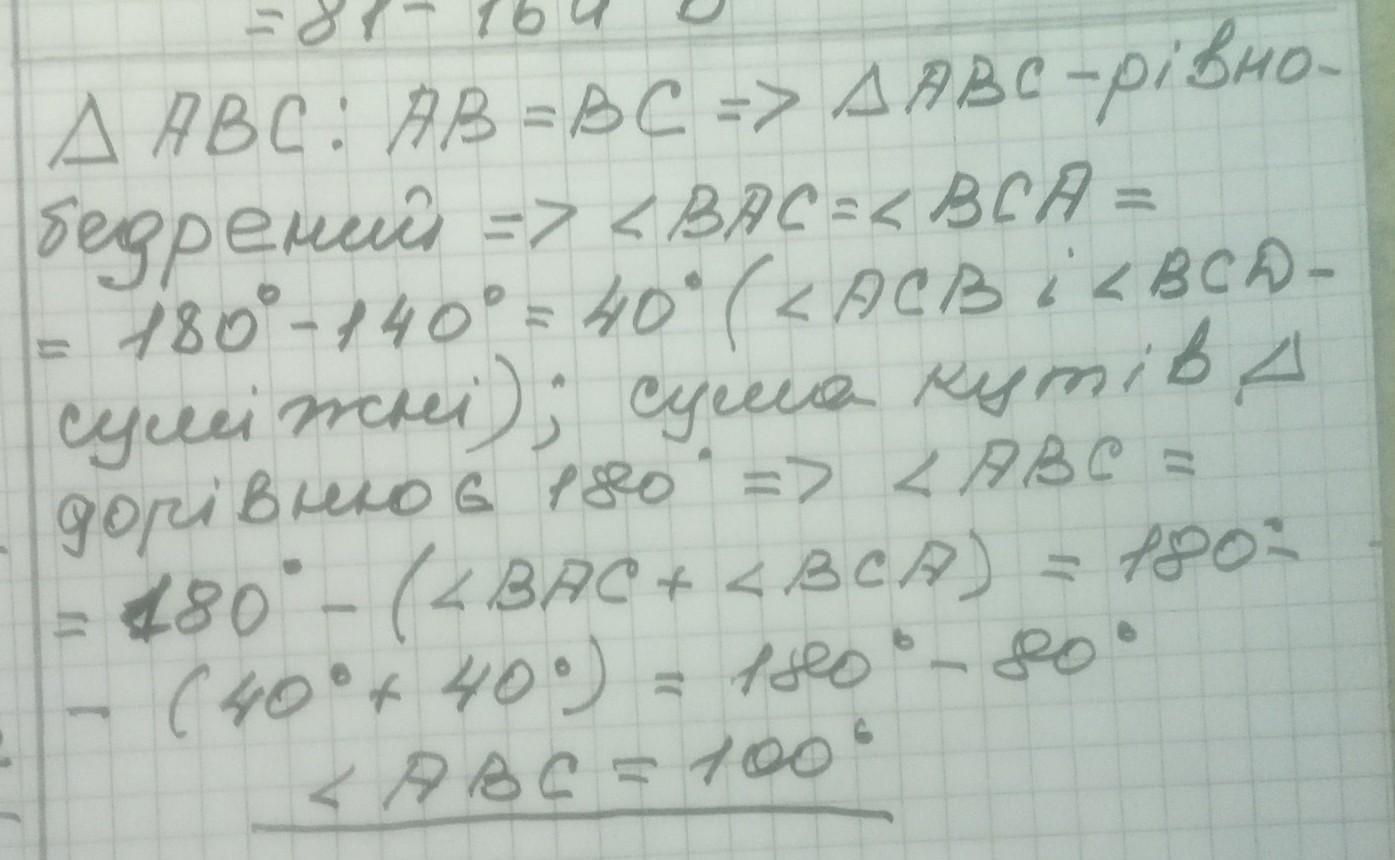 Δ ABC: AB = BC => Δ ABC - рівно-
бедрений => < BAC = < BCA =
= 180° - 140° = 40° ( < ACB і < BCD -
суміжні); сума кутів Δ
дорівнює 180° => < ABC =
= 180° - (< BAC + < BCA) = 180° -
- (40° + 40°) = 180° - 80°
< ABC = 100°